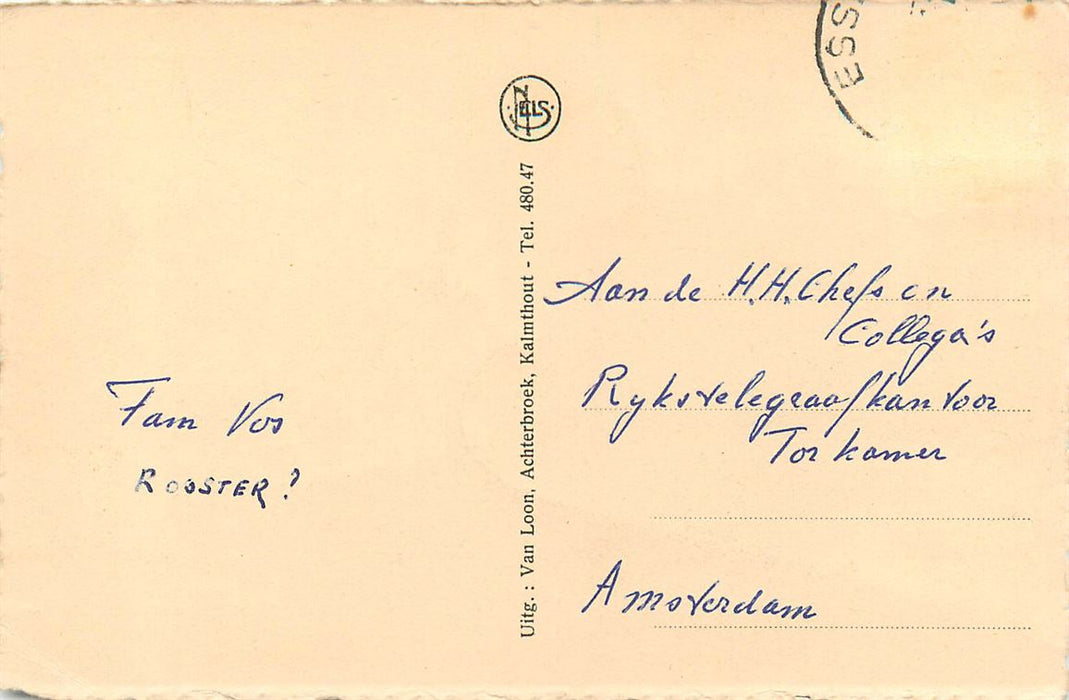 Fam Vos
ROOSTER?
NELS
Uitg. : Van Loon, Achterbroek, Kalmthout - Tel. 480.47
ESS
Aan de H.H. Chefs en
Collega's
Rykstelegraafkantoor
Torkamer
Amsterdam